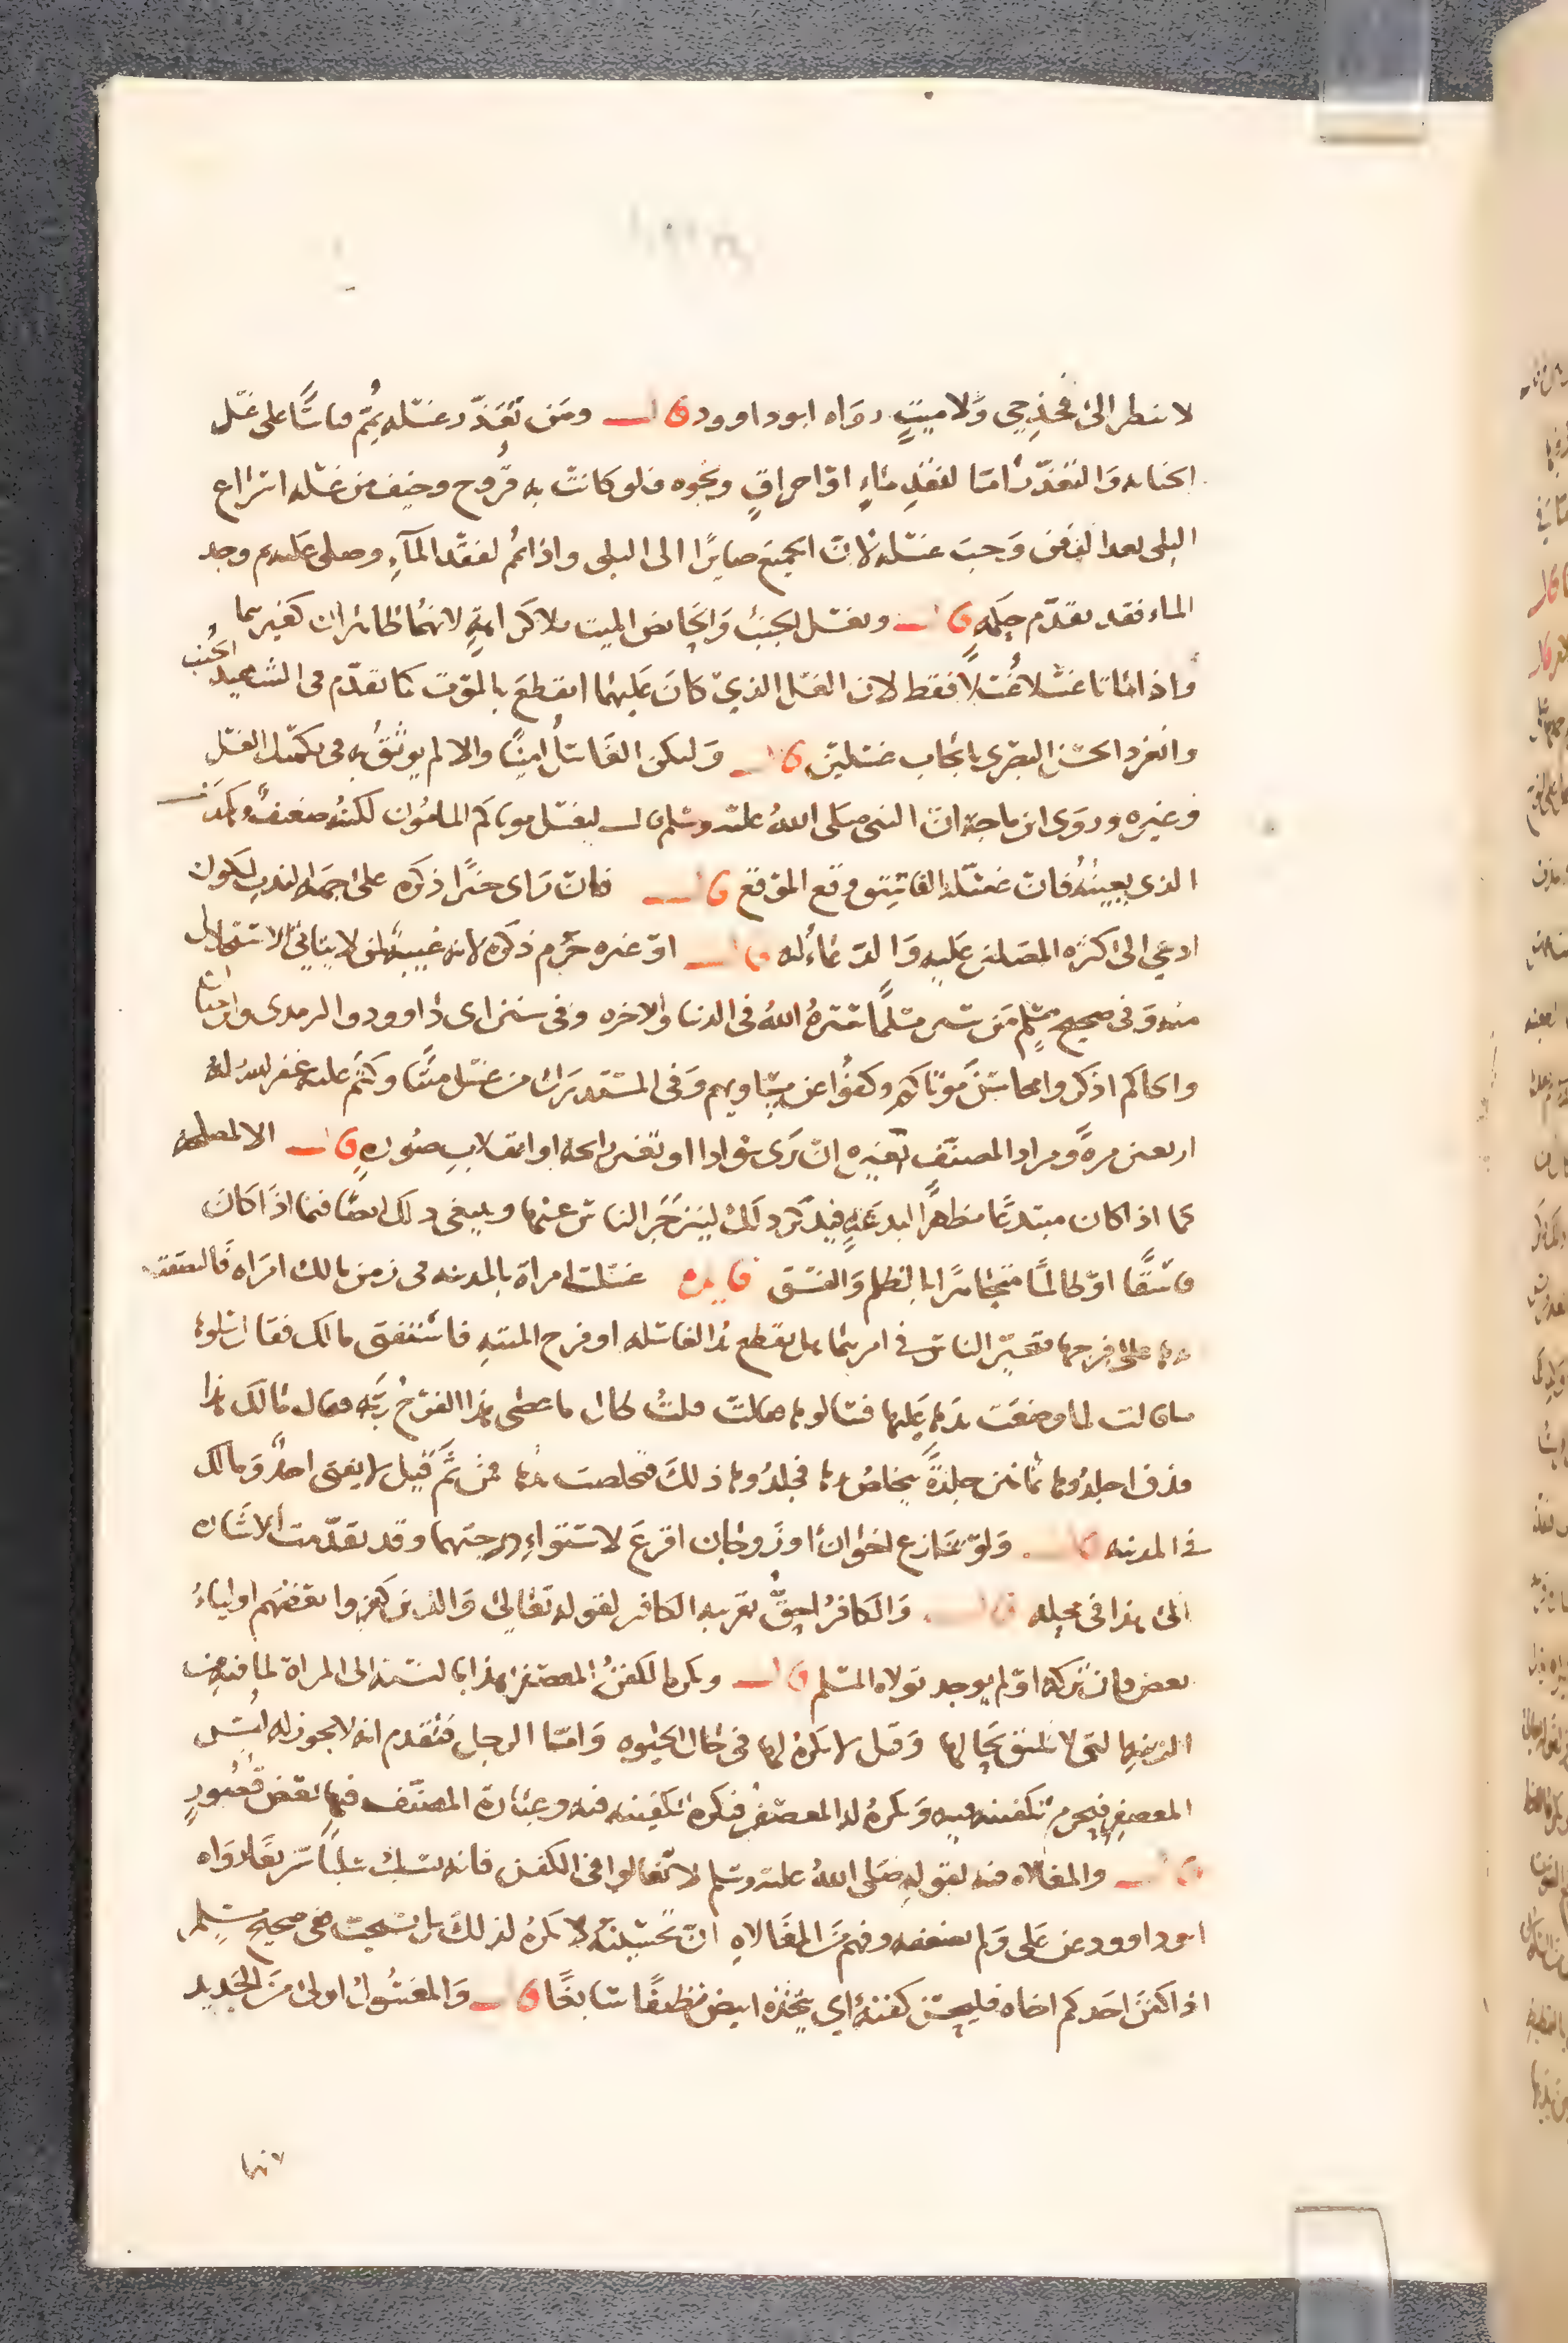 لا تنظر الى فخذ حي ولا ميت رواه ابو داوود قال ومن تعذر غسله يُمّم قياسًا على غسل
الجنابه والتعذر اما لفقد ماءٍ او احراقٍ ونحوه فلو كانت به قروح وخيف من غسله اسراع
البلى بعد الدفن وجب غسله لان الجميع صايرًا الى البلى واذا يمّم لفقد المآء وصلى عليه ثم وجد
الماء فقد تقدّم حكمه قال ويغسل الجنب والحايض الميت بلا كراهةٍ لانهما طاهران كغيرهما
واذا ماتا غسلا غُسلاً فقط لان الغسل الذي كان عليهما انقطع بالموت كما تقدّم في الشهيد الجُنب
وانفرد الحسن البصري بايجاب غسلين قال وليكن الغاسل امينًا والا لم يوثق به في تكميل الغسل
وغيره وروى ابن ماجه ان النبي صلى الله عليه وسلم قال ليغسل موتاكم المامُون لكنه ضعيف وكذا
الذي يعينُه فان غسله الفاسق وقع الموقع قال فان راى خيرًا ذكره على جهة الندب ليكون
ادعي الى اكثره المصلين عليه والدعاء له قال او غيره حرم ذكره لانه غيبة لمن لا يتاتى الاستحلال
منه وفى صحيح مسلم من ستر مسلمًا ستره الله فى الدنيا والاخره وفى سنن ابى داوود والترمدى وابن حبان
والحاكم اذكروا محاسن موتاكم وكفوا عن مساويهم وفى المستدرك من غسل ميتًا وكتم عليه غفر الله له
اربعين مرةً ومراد المصنف بغيره ان يرى سوادا او تغير رايحه او انقلاب صُورهٍ قال الا لمصلحه
كما اذا كان مبتدعًا مظهرًا لبدعته فيذكر ذلك لينزجر الناس عنها وينبغى ذلك ايضًا فيما اذا كان
فاسقًا او ظالمًا متجاهرًا بالظلم والفسق فايده غسلت امراة بالمدينه فى زمن مالك امراه فالتصقت
يدها على فرجها فتحيّر الناس في امرهما هل تقطع يد الغاسله او فرج الميته فاستفتى مالك فقال سلوها
ما قالت لما وضعت يدها عليها فسالوها فقالت قلت طال ما عصى هذا الفرجُ ربَّه فقال مالك هذا
قذف اجلدُوها ثمانين جلدةً تخلصُ يدها فجلدُوها ذلك فخلصت يدها فمن ثَمّ قيل لا يفتى احدٌ ومالك
في المدينه قال ولو تنازع اخوان او زوجان اقرع لاستواءِ درجتهما وقد تقدّمت الاشاره
الى هذا فى محله قال والكافرُ احقُّ بقريبه الكافر لقوله تعالى والذين كفروا بعضهم اولياءُ
بعض فان تركه او لم يوجد تولاه المسلم قال ويكره الكفنُ المعصفر هذا بالنسبة الى المراة لما فيه من
الزينه التى لا تليق بحالها وقيل لا يكره لها فى حال الحيوه وامّا الرجل فتقدم انه لا يجوز له لبس
المعصفر فيحرم تكفينه فيه ويكره له المعصفر فيكره تكفينه فيه وعبارة المصنف فيها بعض قُصُورٍ
قال والمغالاه فيه لقوله صلى الله عليه وسلم لا تغالوا فى الكفن فانه يسلب سلبًا سريعًا رواه
ابو داوود عن على ولم يضعفه وفهم من المغالاه ان تحسينه لا يكره لذلك بل يستحب ففى صحيح مسلم
اذا كفن احدكم اخاه فليحسن كفنه اي يتخذه ابيض نظيفًا سابغًا قال والمغسول اولى من الجديد